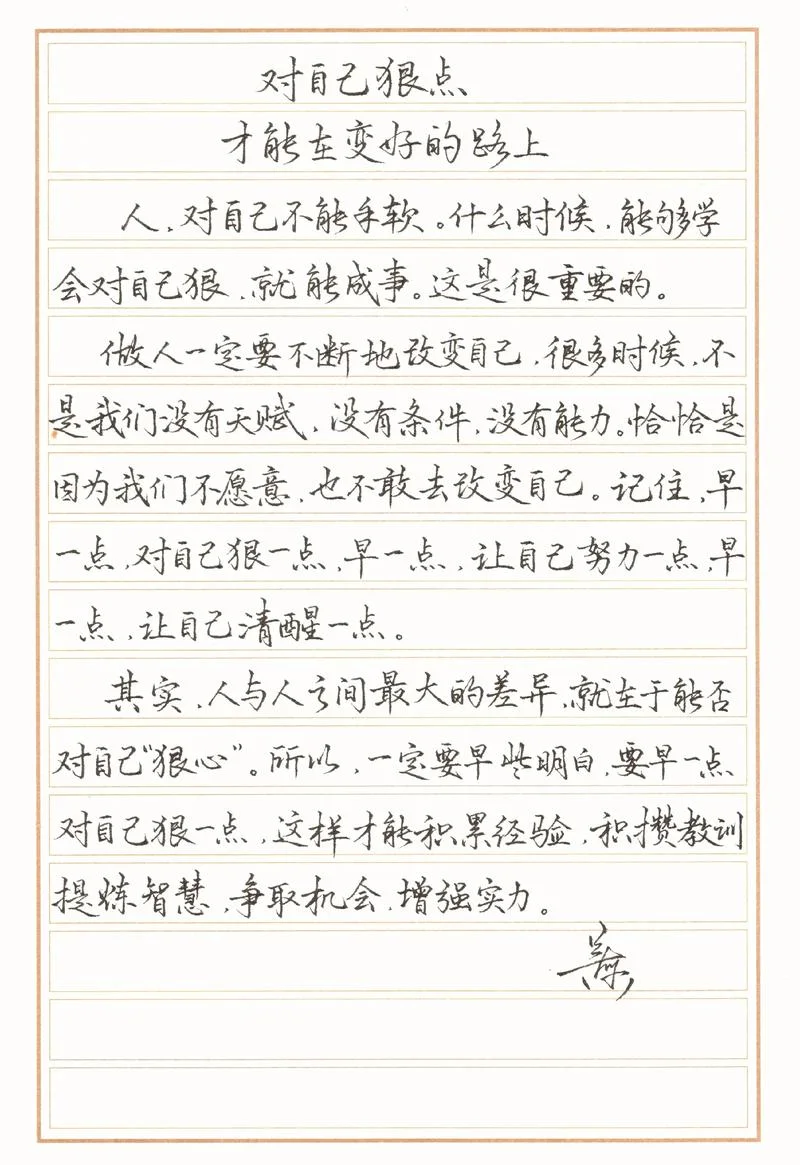 对自己狠点
才能在变好的路上
人，对自己不能手软。什么时候，能够学
会对自己狠，就能成事。这是很重要的。
做人一定要不断地改变自己，很多时候，不
是我们没有天赋，没有条件，没有能力。恰恰是
因为我们不愿意，也不敢去改变自己。记住，早
一点，对自己狠一点，早一点，让自己努力一点，早
一点，让自己清醒一点。
其实，人与人之间最大的差异，就在于能否
对自己“狠心”。所以，一定要早些明白，要早一点
对自己狠一点，这样才能积累经验，积攒教训
提炼智慧，争取机会，增强实力。